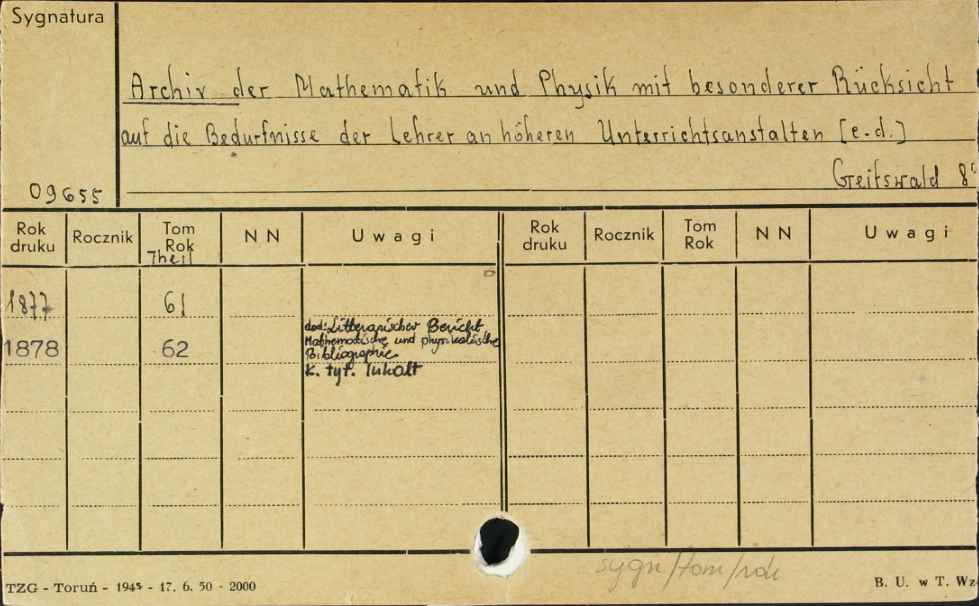 Sygnatura
Archiv der Mathematik und Physik mit besonderer Rücksicht
auf die Bedurfnisse der Lehrer an höheren Unterrichtsanstalten [e.d.]
Greifswald 8°
09655
Rok druku Rocznik Tom Rok NN Uwagi Rok druku Rocznik Tom Rok NN Uwagi
Theil
1877 61
dod: Litterarischer Bericht
1878 62 Mathematische und physikalische
Bibliographie
K. tyt. Inhalt
sygn/tom/rok
TZG - Toruń - 1945 - 17. 6. 50 - 2000 B. U. w T. Wz